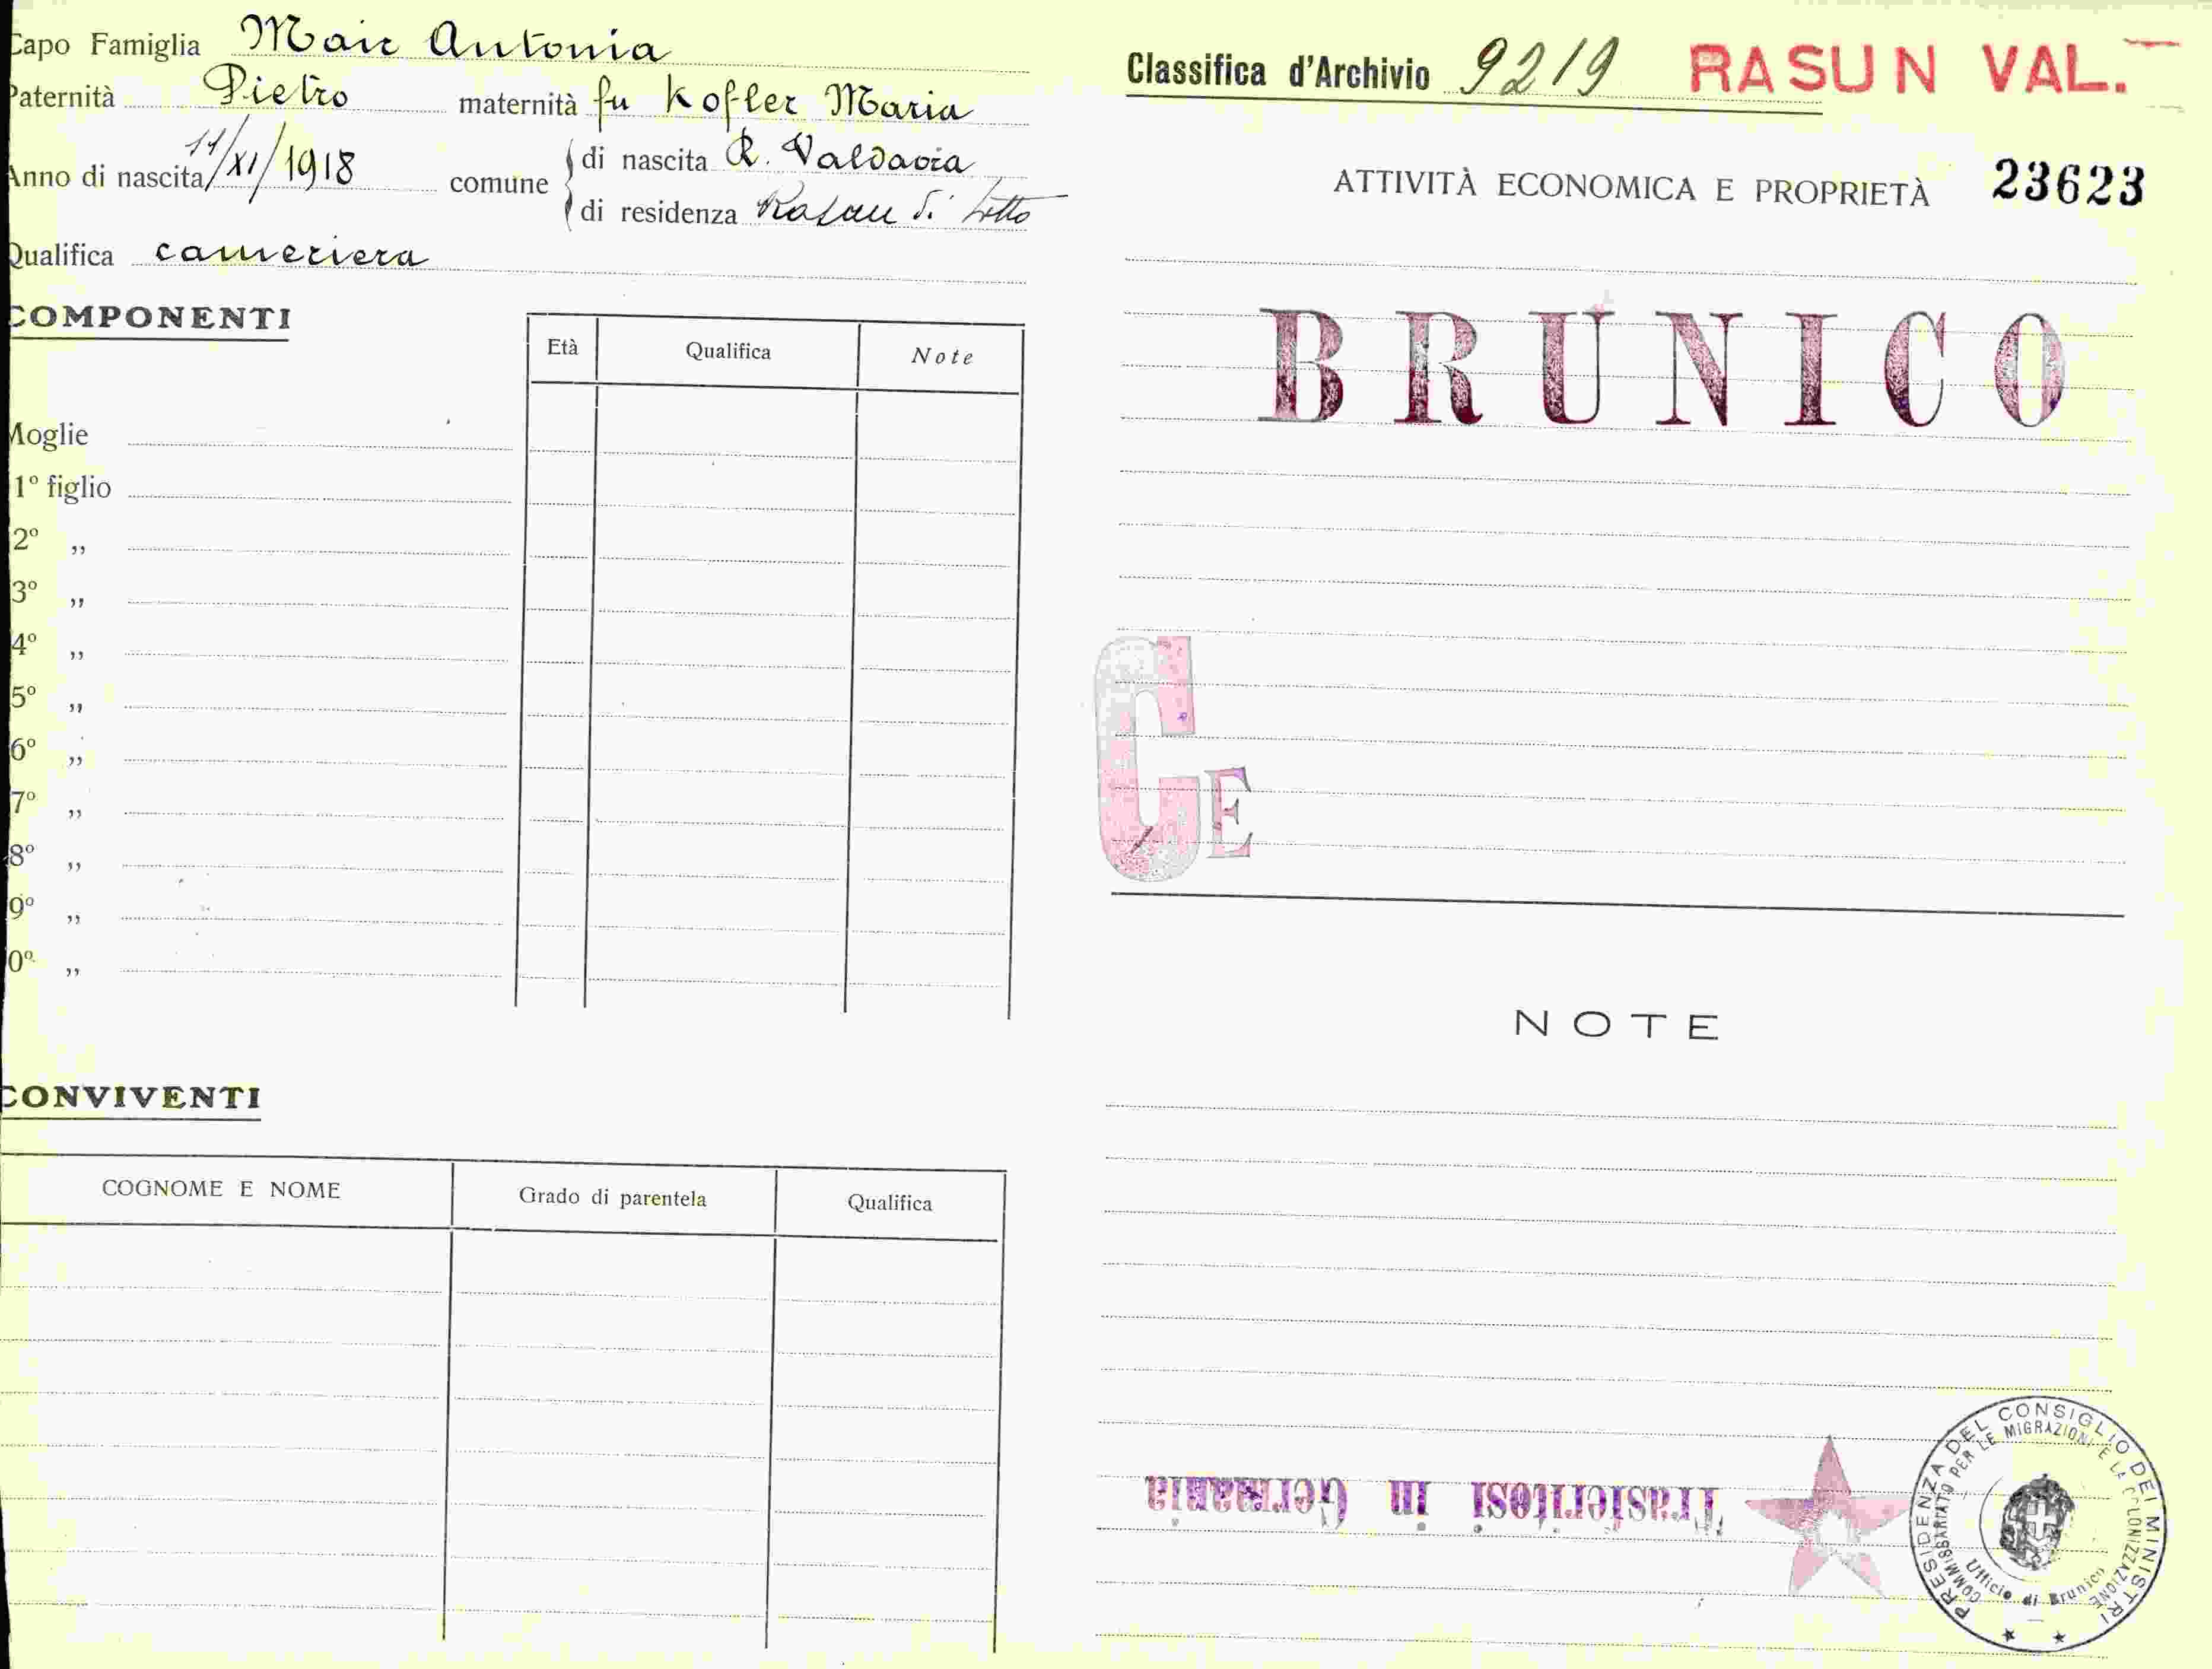 Capo Famiglia Mair Antonia
Paternità Pietro maternità fu Kofler Maria
Anno di nascita 11/XI/1918 comune di nascita R. Valdaora
di residenza Rasun di Sotto
Qualifica cameriera
COMPONENTI
Età Qualifica Note
Moglie
1º figlio
2º „
3º „
4º „
5º „
6º „
7º „
8º „
9º „
0º „
CONVIVENTI
COGNOME E NOME Grado di parentela Qualifica
Classifica d'Archivio 9219 RASUN VAL.
ATTIVITÀ ECONOMICA E PROPRIETÀ 23623
BRUNICO
GE
NOTE
Trasferitosi in Germania
PRESIDENZA DEL CONSIGLIO DEI MINISTRI
COMMISSARIATO PER LE MIGRAZIONI E LA COLONIZZAZIONE
Ufficio di Brunico